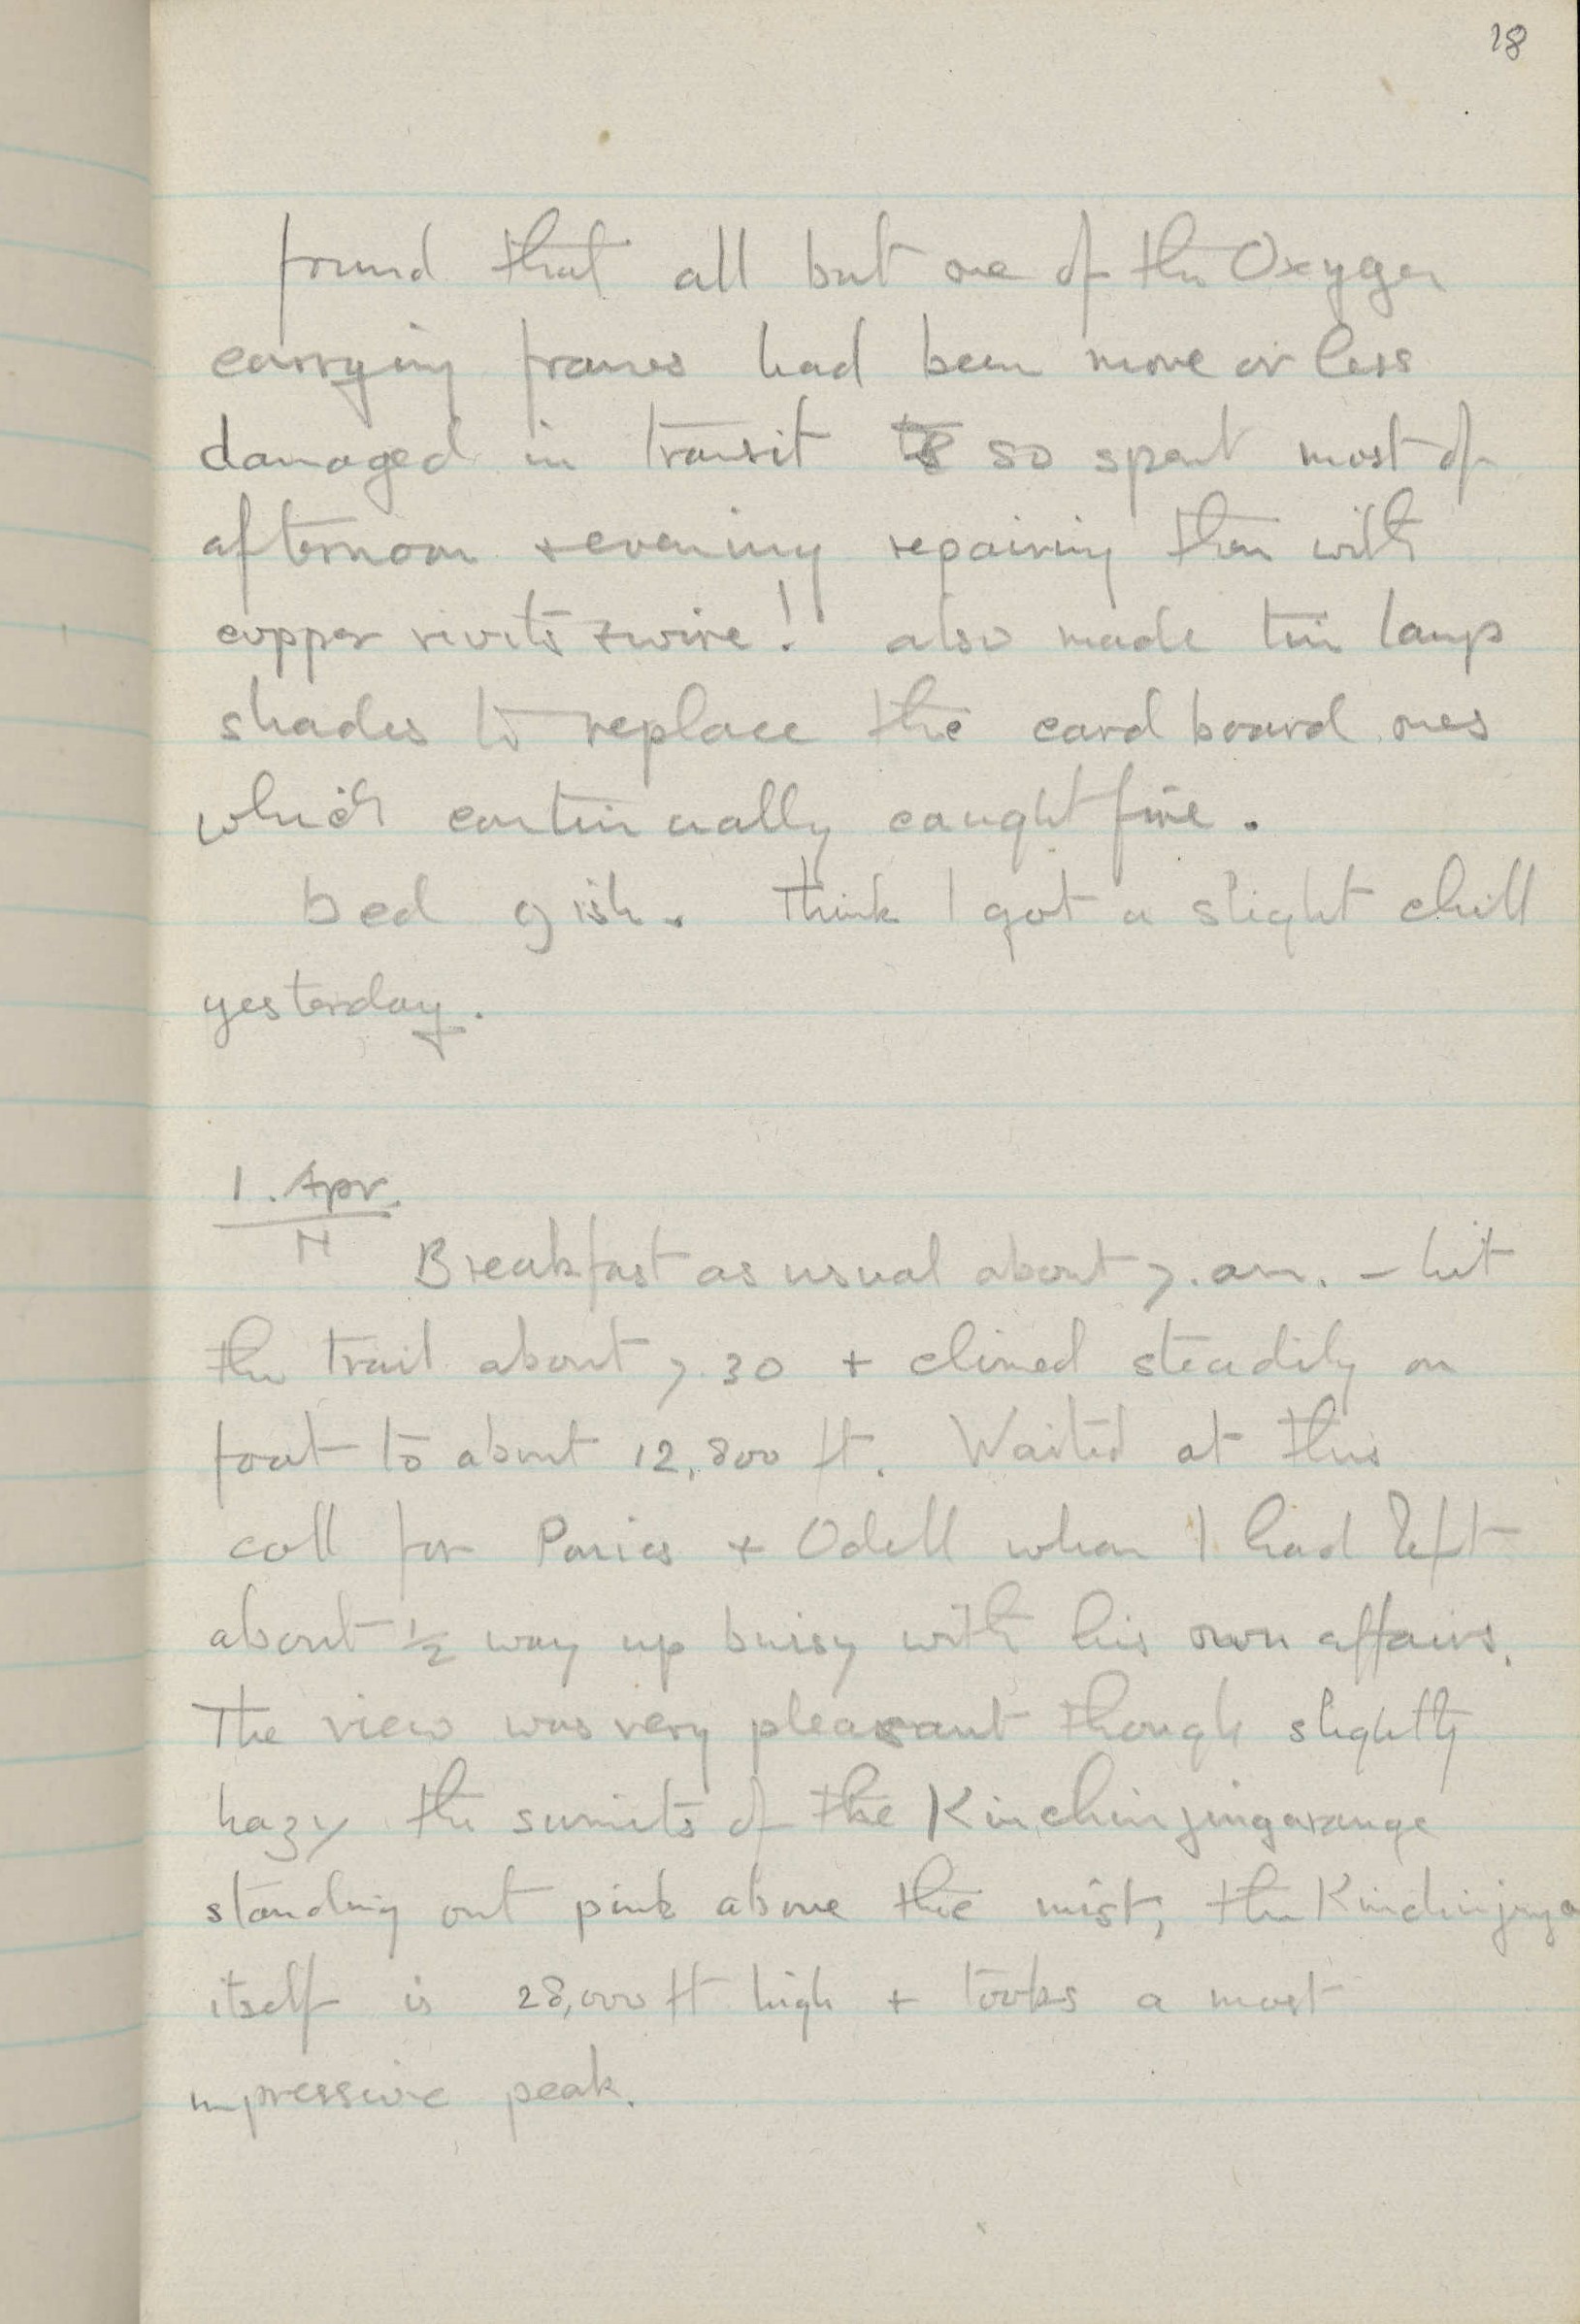 18
found that all but one of the Oxygen
carrying frames had been more or less
damaged in transit so spent most of
afternoon + evening repairing them with
copper rivits + wire! also made tin lamp
shades to replace the card board ones
which continually caught fire.
bed 9 ish. Think I got a slight chill
yesterday.
1. Apr.
Breakfast as usual about 7. am. – hit
the trail about 7.30 + climed steadily on
foot to about 12,800 ft. Waited at this
coll for Ponies + Odell whom I had left
about ½ way up buisy with his own affairs.
The view was very pleasant though slightly
hazy the sumits of the Kinchinjinga range
standing out pink above the mist, the Kinchinjinga
itself is 28,000 ft high + looks a most
impressive peak.